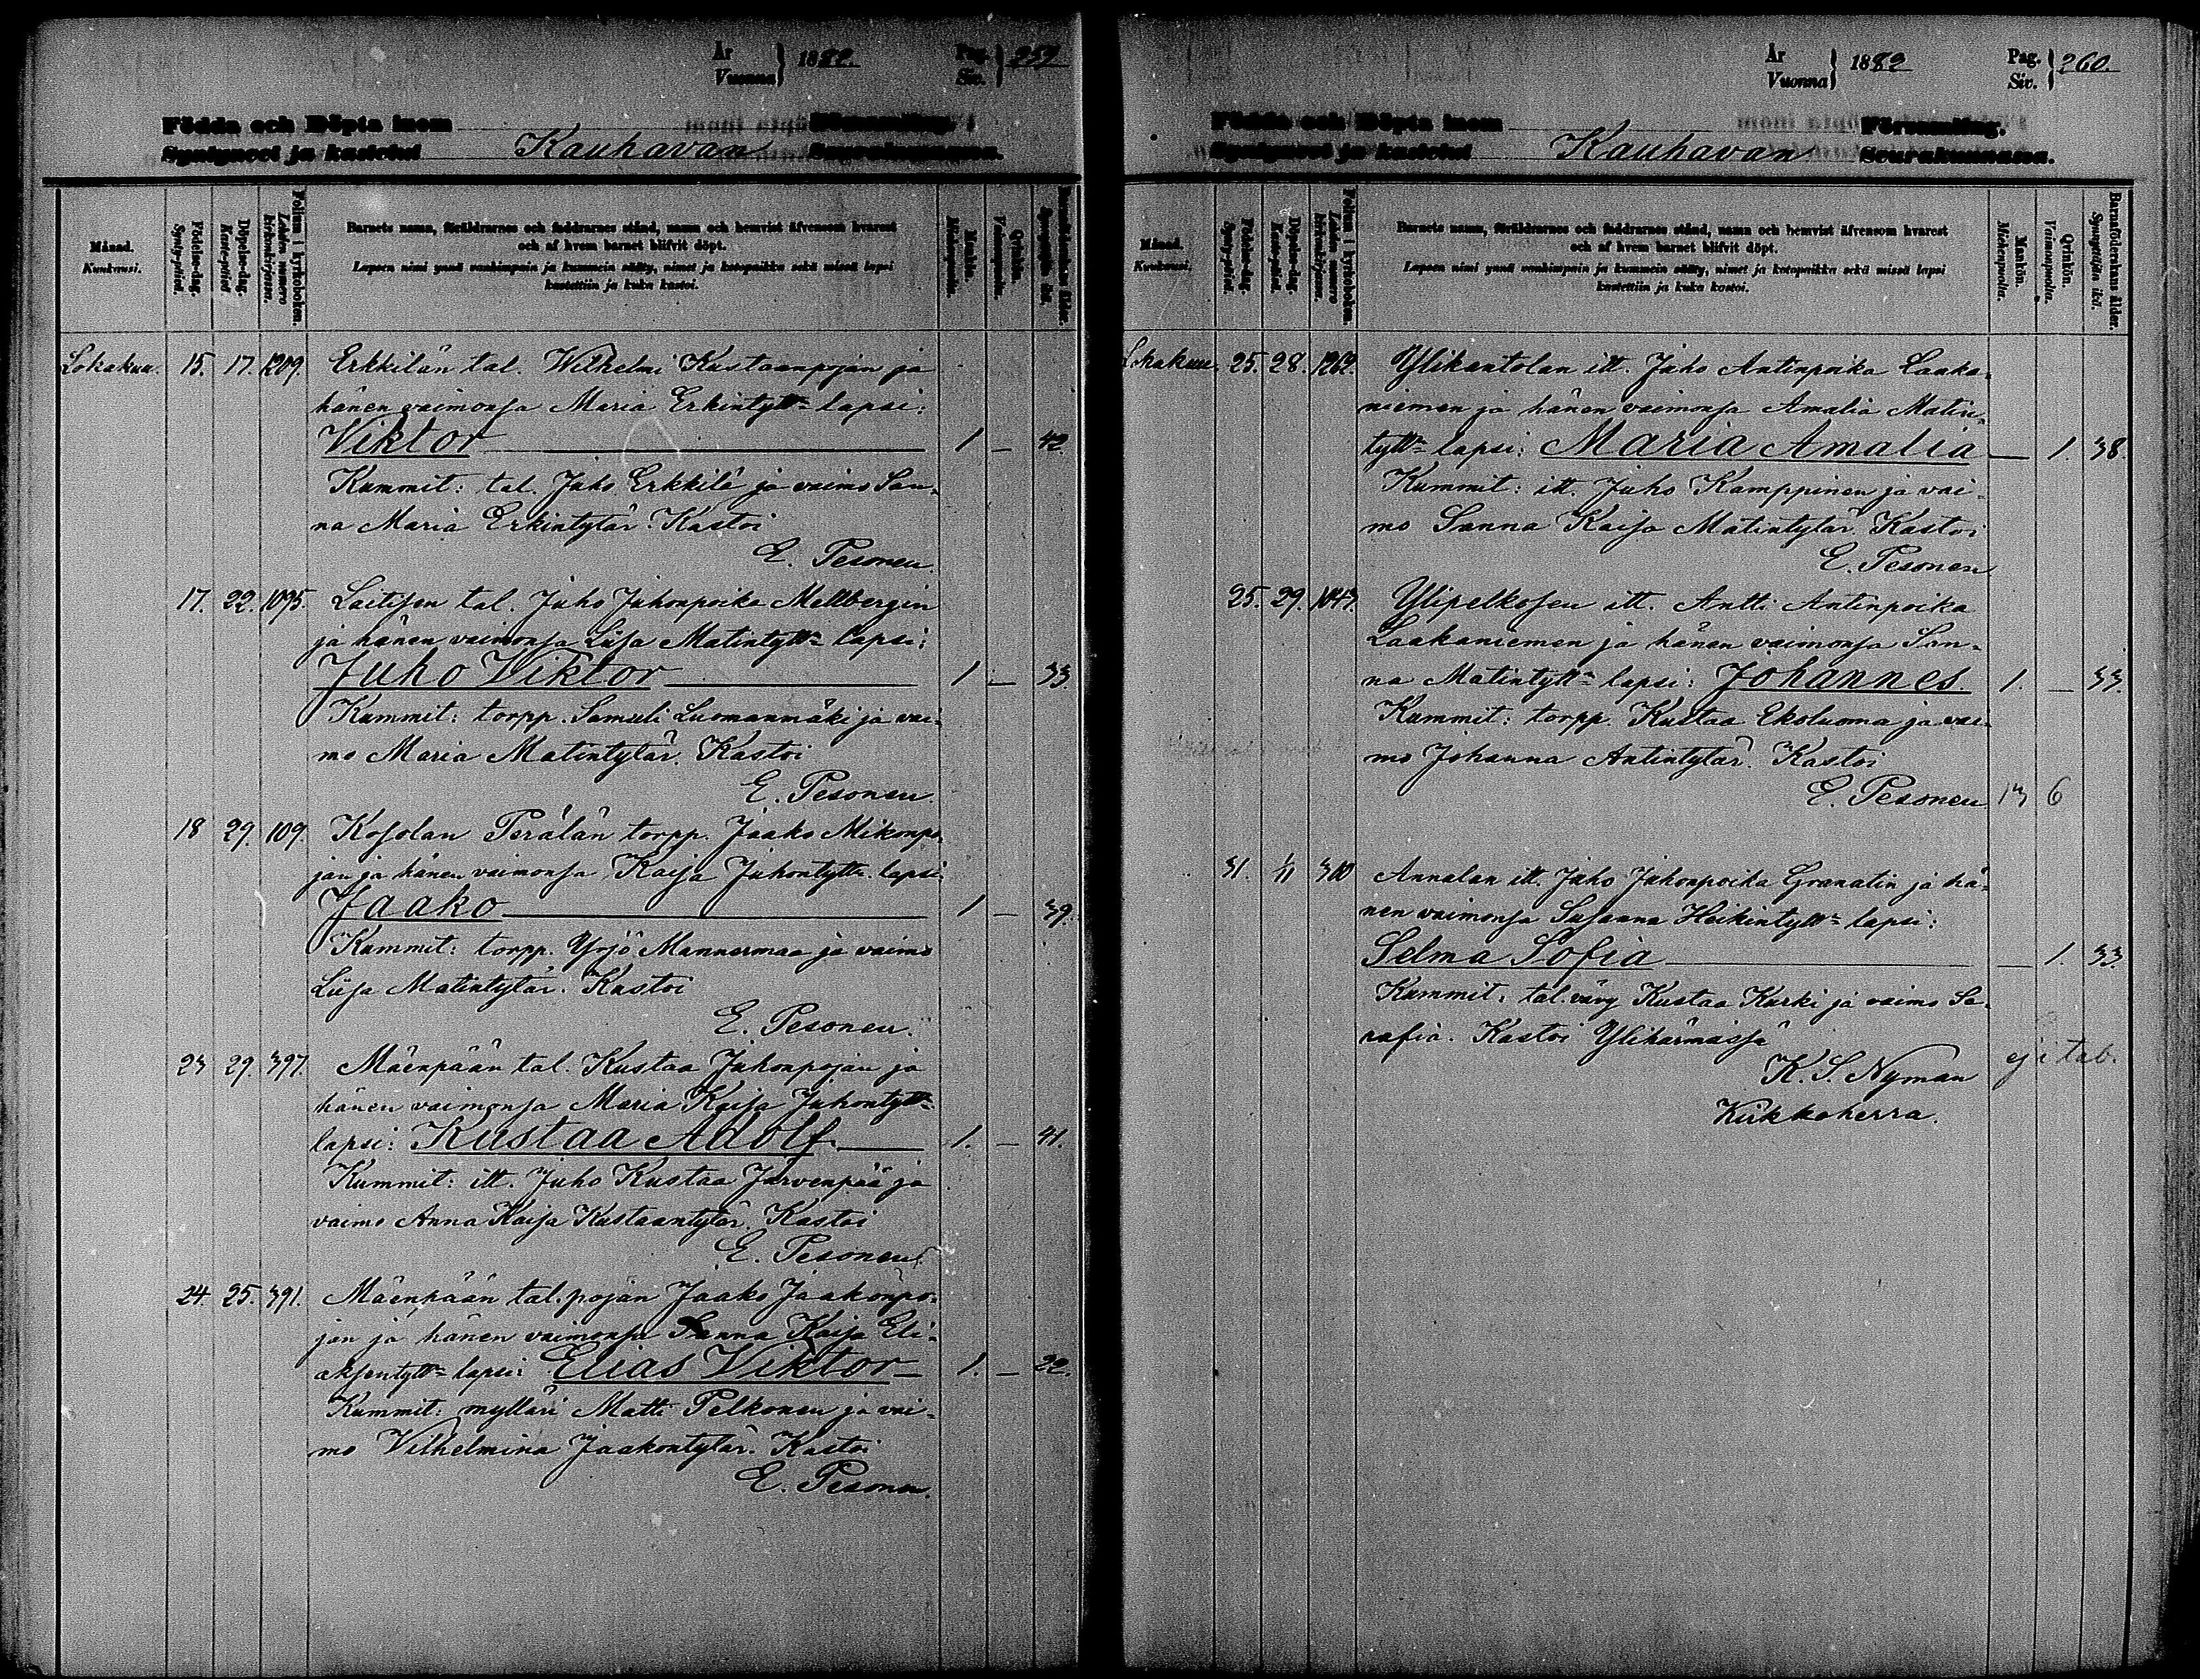 År
Vuonna } 1882. Pag. Siv. } 259.
Födda och Döpta inom Församling.
Syntyneet ja kastetut Kauhavan Seurakunnassa.
Månad. Kuukausi.
Födelse-dag. Synty-päivä.
Döpelse-dag. Kaste-päivä.
Folium i kyrkoboken. Lehden numero kirkonkirjassa.
Barnets namn, föräldrarnes och faddrarnes stånd, namn och hemvist äfvensom hvarest
och af hvem barnet blifvit döpt.
Lapsen nimi ynnä vanhimpain ja kummein sääty, nimet ja kotopaikka sekä missä lapsi
kastettiin ja kuka kastoi.
Mankön. Miehenpuolia.
Qvinkön. Vaimonpuolia.
Barnaföderskans ålder. Synnyttäjän ikä.
Lokakuu. 15. 17. 1209. Erkkilän tal. Wilhelmi Kustaanpojan ja
hänen vaimonsa Maria Erkintytt= lapsi:
Viktor 1 — 42.
Kummit: tal. Juho Erkkilä ja vaimo San-
na Maria Erkintytär. Kastoi
E. Pesonen.
17. 22. 1095. Laitisen tal. Juho Juhonpoika Mellbergin
ja hänen vaimonsa Liisa Matintytt= lapsi:
Juho Viktor 1 — 33.
Kummit: torpp. Samuli Luomanmäki ja vai-
mo Maria Matintytär. Kastoi
E. Pesonen.
18 29. 109. Kosolan Perälän torpp. Jaako Mikonpo-
jan ja hänen vaimonsa Kaisa Juhontytt. lapsi
Jaako 1 — 39.
Kummit: torpp. Yrjö Mannermaa ja vaimo
Liisa Matintytär. Kastoi
E. Pesonen.
23 29. 397. Mäenpään tal. Kustaa Juhonpojan ja
hänen vaimonsa Maria Kaisa Juhontytt=
lapsi: Kustaa Adolf 1. — 41.
Kummit: itt. Juho Kustaa Järvenpää ja
vaimo Anna Kaisa Kustaantytär. Kastoi
E. Pesonen.
24. 25. 391. Mäenpään tal.pojan Jaako Jaakonpo-
jan ja hänen vaimonsa Sanna Kaisa Eli-
aksentytt= lapsi: Elias Viktor 1. — 22.
Kummit: mylläri Matti Pelkonen ja vai-
mo Vilhelmina Jaakontytär. Kastoi
E. Pesonen.
År
Vuonna } 1882 Pag. Siv. } 260.
Födda och Döpta inom Församling.
Syntyneet ja kastetut Kauhavan Seurakunnassa.
Månad. Kuukausi.
Födelse-dag. Synty-päivä.
Döpelse-dag. Kaste-päivä.
Folium i kyrkoboken. Lehden numero kirkonkirjassa.
Barnets namn, föräldrarnes och faddrarnes stånd, namn och hemvist äfvensom hvarest
och af hvem barnet blifvit döpt.
Lapsen nimi ynnä vanhimpain ja kummein sääty, nimet ja kotopaikka sekä missä lapsi
kastettiin ja kuka kastoi.
Mankön. Miehenpuolia.
Qvinkön. Vaimonpuolia.
Barnaföderskans ålder. Synnyttäjän ikä.
Lokakuu. 25. 28. 1262. Ylikantolan itt. Juho Antinpoika Laaka-
niemen ja hänen vaimonsa Amalia Matin-
tytt= lapsi: Maria Amalia — 1. 38.
Kummit: itt. Juho Kamppinen ja vai-
mo Sanna Kaisa Matintytär. Kastoi
E. Pesonen
25. 29. 1043. Ylipelkosen itt. Antti Antinpoika
Laakaniemen ja hänen vaimonsa San-
na Matintytt= lapsi: Johannes. 1. — 33.
Kummit: torpp. Kustaa Ekoluoma ja vai-
mo Johanna Antintytär. Kastoi
E. Pesonen 13 6
31. 1/11 310 Annalan itt. Juho Juhonpoika Granatin ja hä-
nen vaimonsa Susanna Heikintytt= lapsi:
Selma Sofia — 1. 33.
Kummit: tal. vävy Kustaa Kurki ja vaimo Se-
rafia. Kastoi Ylihärmässä
K. S. Nyman ej i tab.
Kirkkoherra.